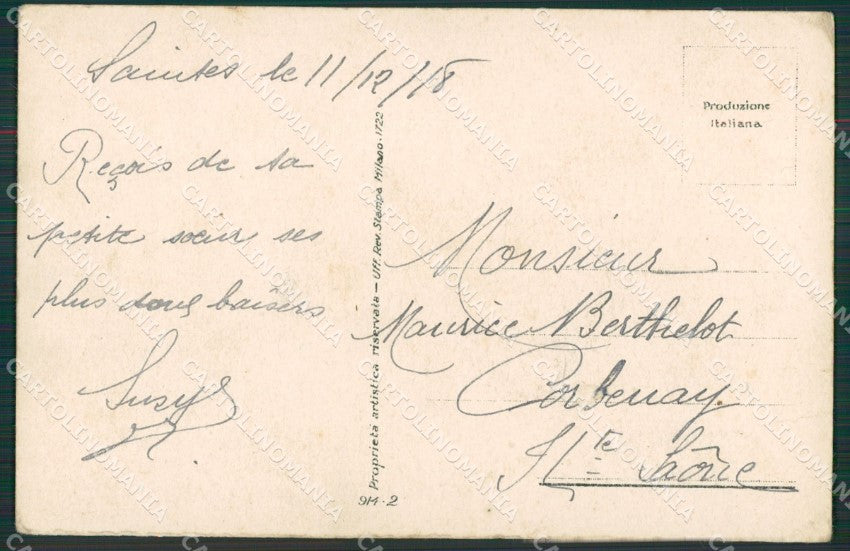 Saintes le 11/12/18
Reçois de ta
petite sœur ses
plus doux baisers
Susy
Proprieta artistica riservata — Uff. Rev. Stampa Milano - 1722
9M - 2
Produzione
Italiana
Monsieur
Maurice Berthelot
Corbenay
Hte Saône
CARTOLINOMANIA